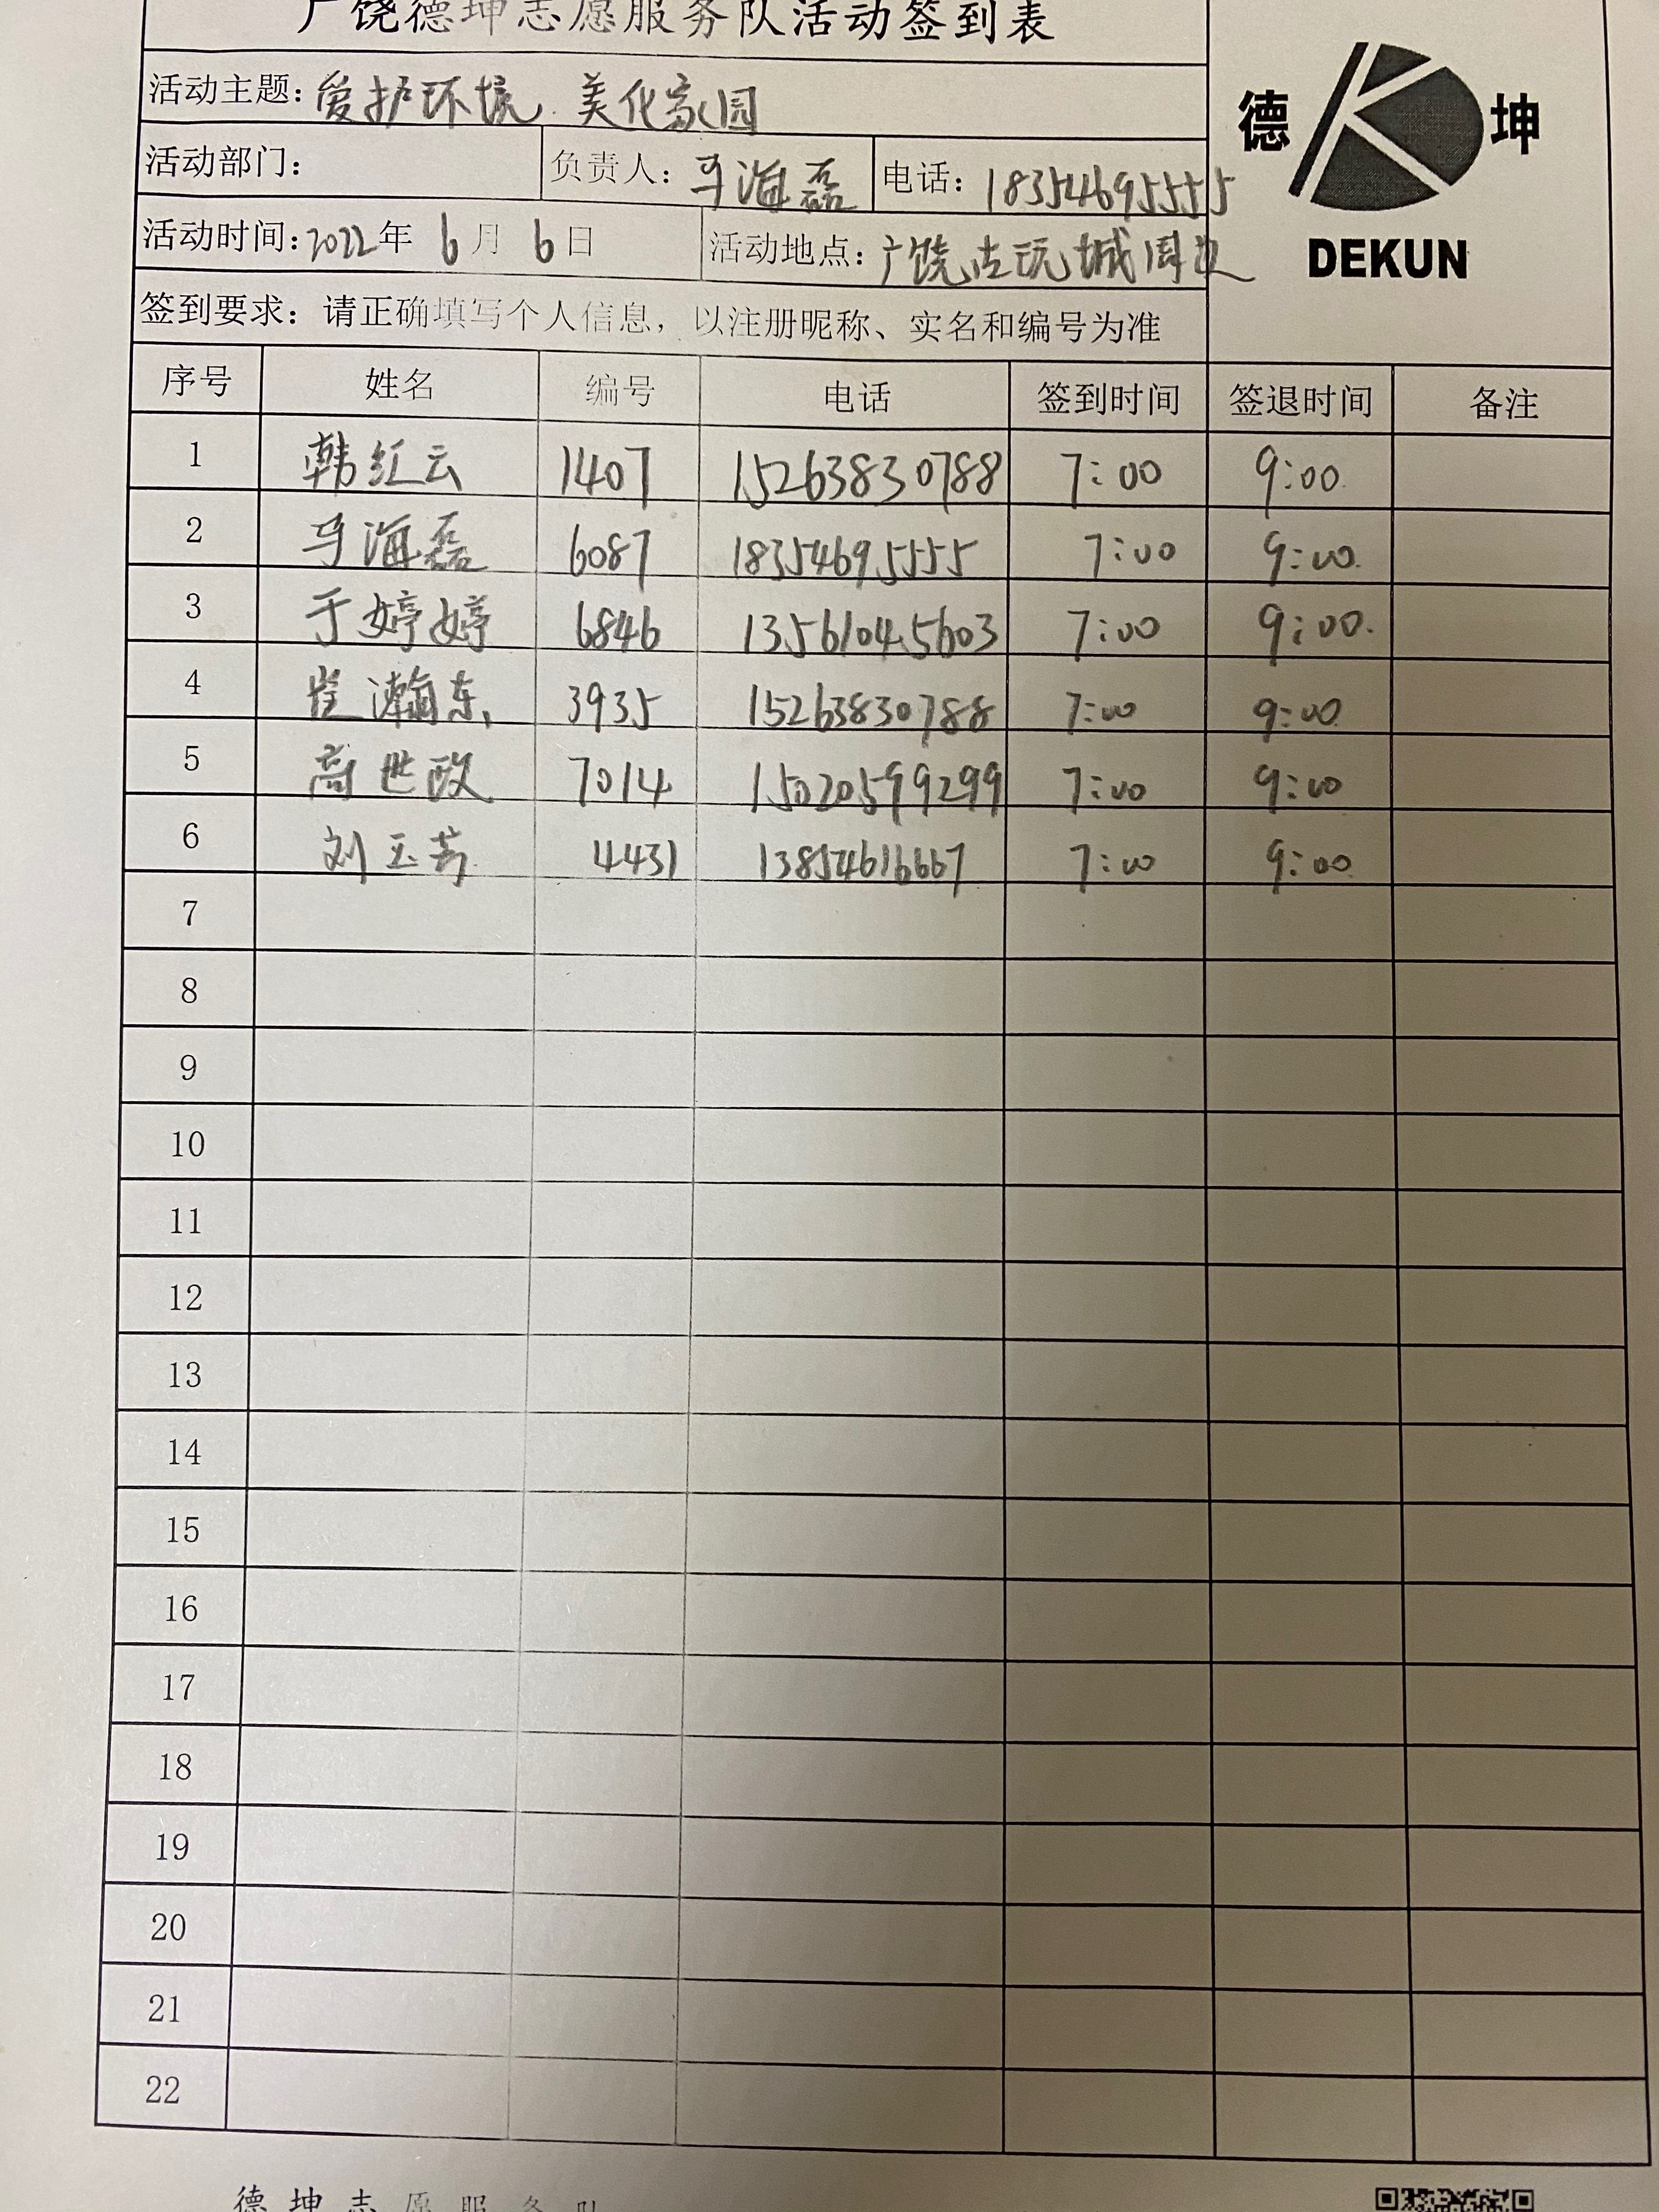 广饶德坤志愿服务队活动签到表
活动主题：爱护环境 美化家园
德 坤
活动部门： 负责人：马海磊 电话：18354695555
活动时间：2022年 6月 6日 活动地点：广饶古玩城周边
DEKUN
签到要求：请正确填写个人信息，以注册昵称、实名和编号为准
序号 姓名 编号 电话 签到时间 签退时间 备注
1 韩红云 1407 15263830788 7:00 9:00
2 马海磊 6087 18354695555 7:00 9:00
3 于婷婷 6846 13561045603 7:00 9:00
4 崔瀚东 3935 15263830788 7:00 9:00
5 高世政 7014 15020599299 7:00 9:00
6 刘玉芳 4431 13854616667 7:00 9:00
7
8
9
10
11
12
13
14
15
16
17
18
19
20
21
22
德坤志愿服务队